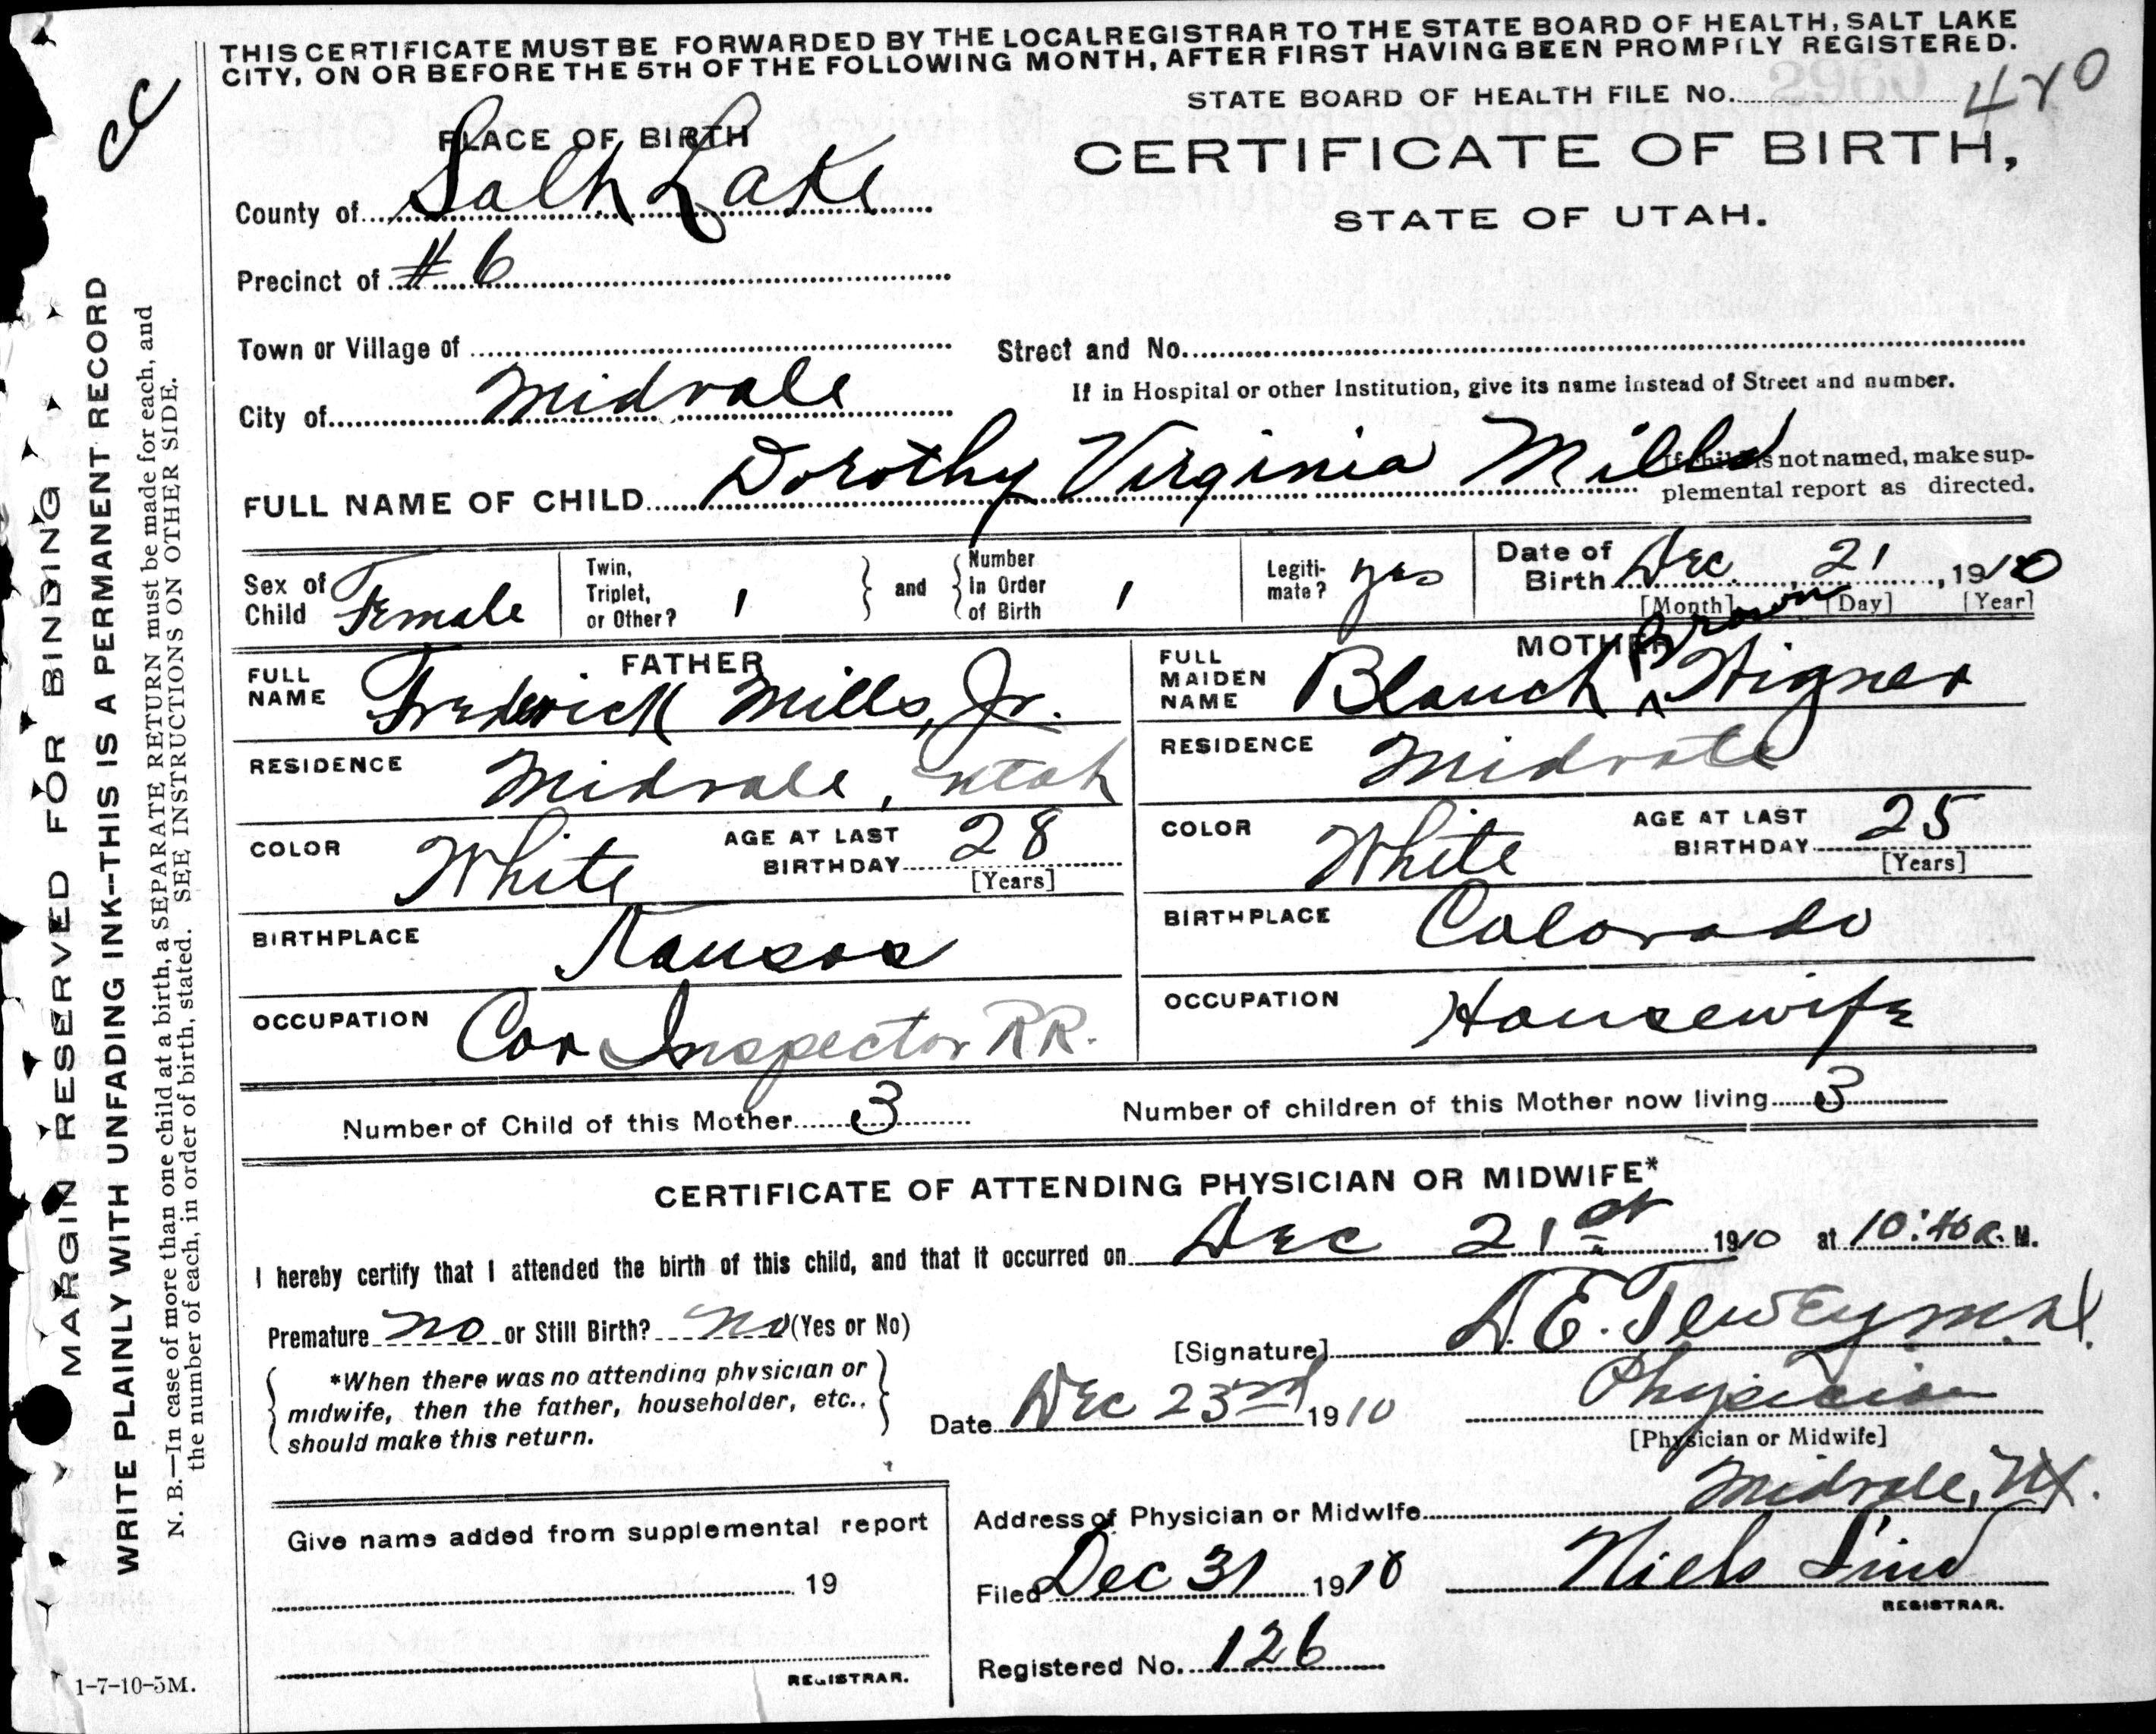 THIS CERTIFICATE MUST BE FORWARDED BY THE LOCAL REGISTRAR TO THE STATE BOARD OF HEALTH, SALT LAKE
CITY, ON OR BEFORE THE 5TH OF THE FOLLOWING MONTH, AFTER FIRST HAVING BEEN PROMPTLY REGISTERED.
cc
STATE BOARD OF HEALTH FILE No. 420
PLACE OF BIRTH
CERTIFICATE OF BIRTH,
STATE OF UTAH.
County of Salt Lake
Precinct of # 6
Town or Village of
Street and No.
If in Hospital or other Institution, give its name instead of Street and number.
City of Midvale
FULL NAME OF CHILD Dorothy Virginia Mills
If child is not named, make sup-
plemental report as directed.
Sex of Child Female
Twin, Triplet, or Other? 1
and Number in Order of Birth 1
Legiti-mate? yes
Date of Birth Dec 21, 1910
[Month] [Day] [Year]
FATHER
FULL NAME Frederick Mills, Jr.
RESIDENCE Midvale, Utah
COLOR White
AGE AT LAST BIRTHDAY 28
[Years]
BIRTHPLACE Kansas
OCCUPATION Car Inspector RR.
MOTHER
FULL MAIDEN NAME Blanch Brown
RESIDENCE Midvale
COLOR White
AGE AT LAST BIRTHDAY 25
[Years]
BIRTHPLACE Colorado
OCCUPATION Housewife
Number of Child of this Mother 3
Number of children of this Mother now living 3
CERTIFICATE OF ATTENDING PHYSICIAN OR MIDWIFE*
I hereby certify that I attended the birth of this child, and that it occurred on Dec 21st 1910 at 10:40 a. M.
Premature no or Still Birth? no (Yes or No)
*When there was no attending physician or
midwife, then the father, householder, etc.,
should make this return.
[Signature] D. E. M.D.
Date Dec 23rd 1910
Physician
[Physician or Midwife]
Address of Physician or Midwife Midvale, Ut.
Filed Dec 31 1910
Niels Lind
REGISTRAR.
Registered No. 126
Give name added from supplemental report
19
REGISTRAR.
MARGIN RESERVED FOR BINDING
WRITE PLAINLY WITH UNFADING INK--THIS IS A PERMANENT RECORD
N. B.—In case of more than one child at a birth, a SEPARATE RETURN must be made for each, and
the number of each, in order of birth, stated. SEE INSTRUCTIONS ON OTHER SIDE.
1-7-10-5M.